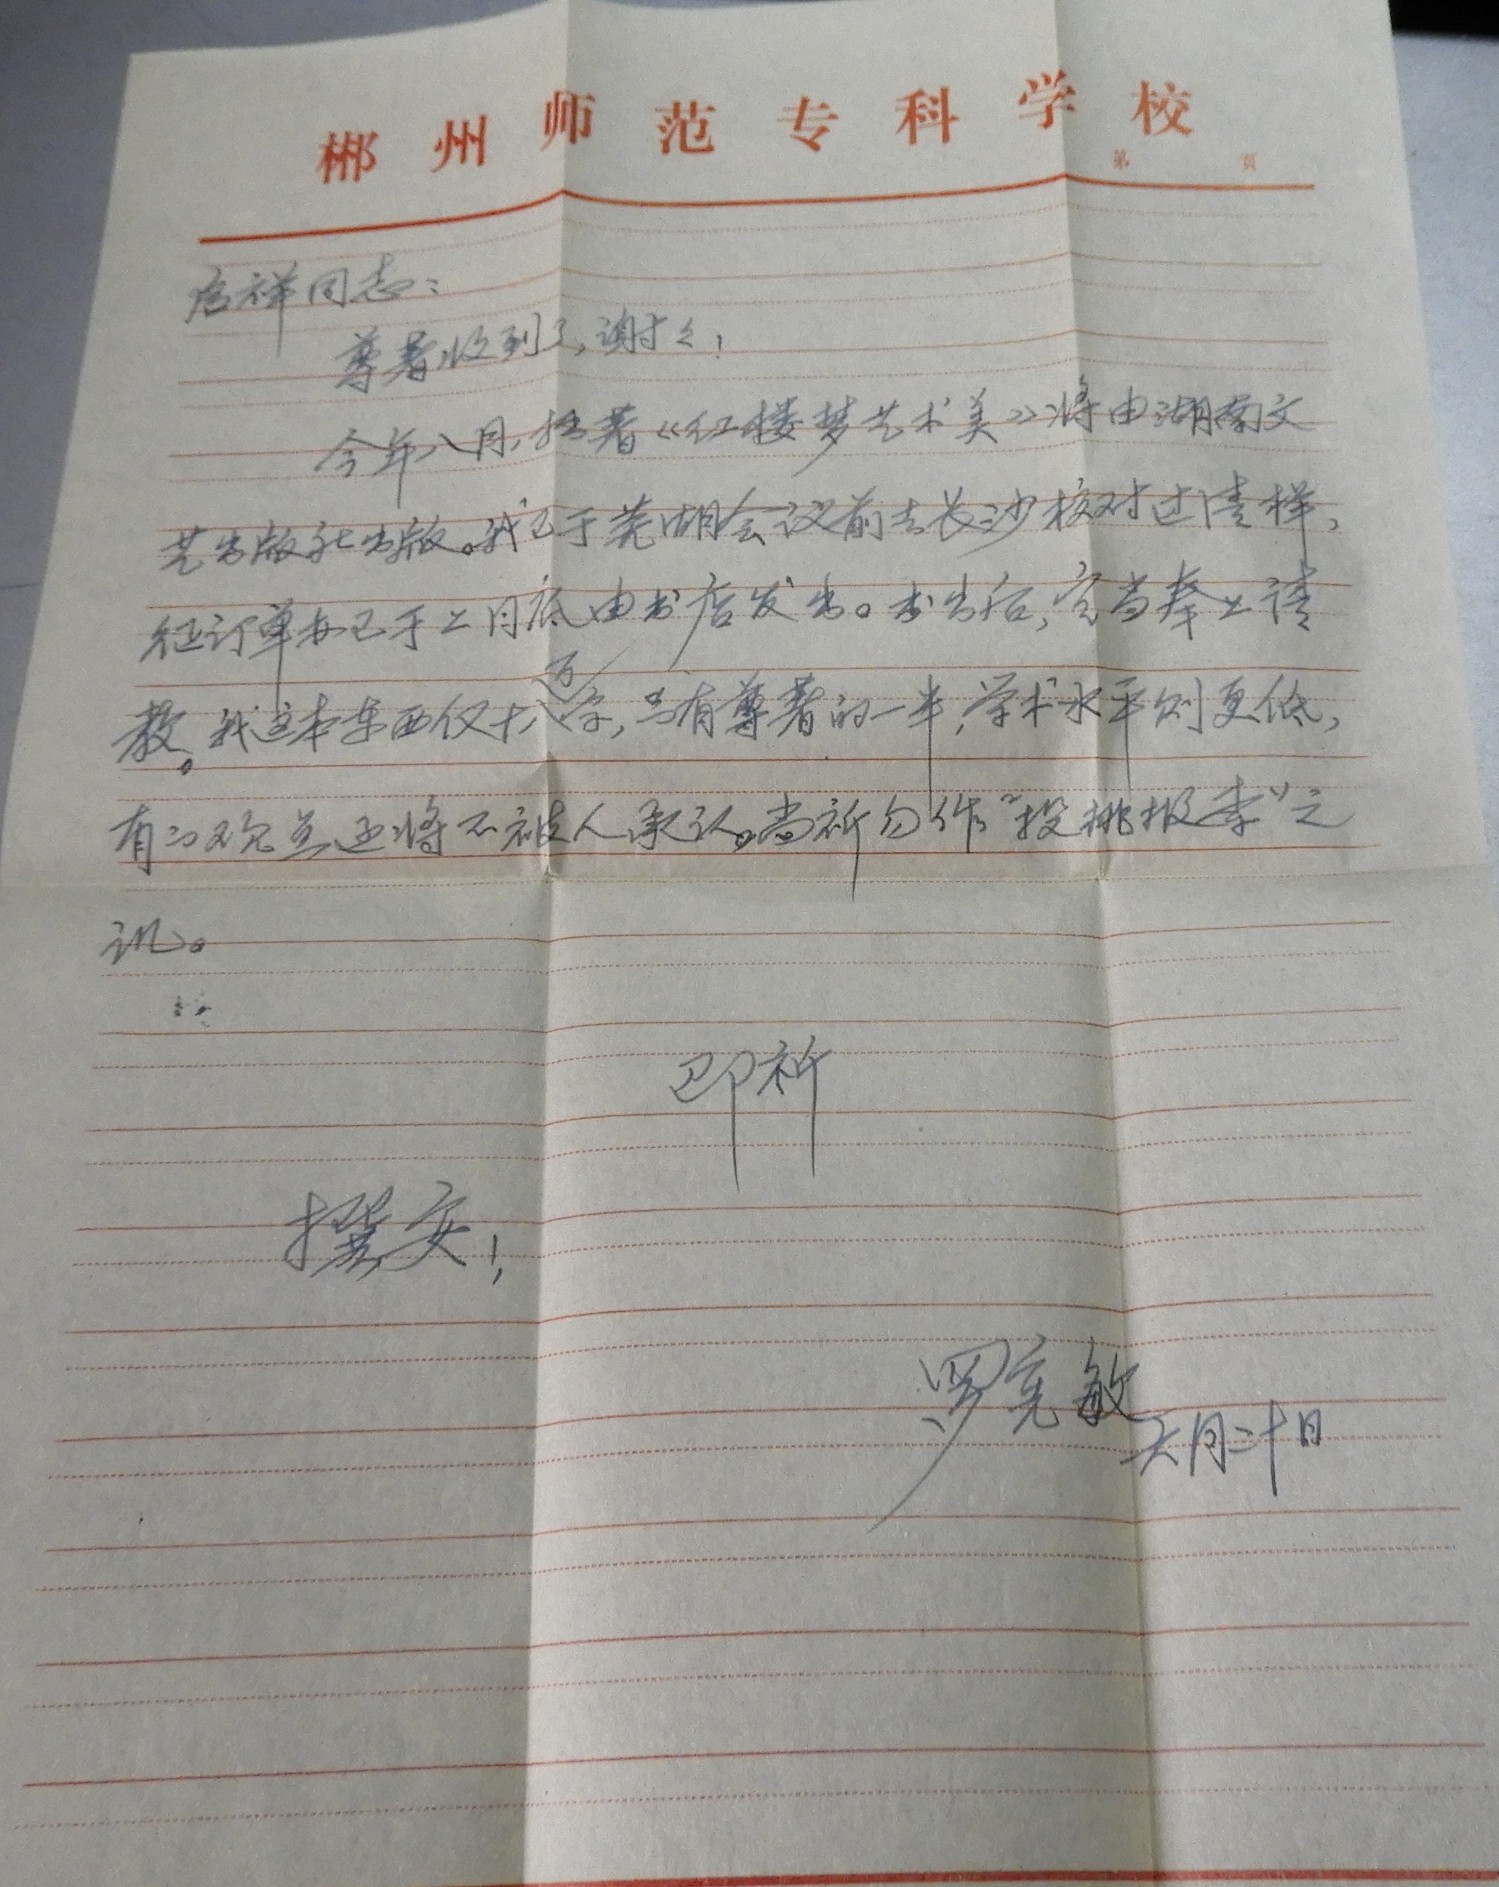 郴州师范专科学校
第 页
启祥同志：
尊著收到了，谢々！
今年八月，拙著《红楼梦艺术美》将由湖南文
艺出版社出版。我已于芜湖会议前去长沙校对过清样，
征订单也已于上月底由书店发出。书出后，定当奉上请
教。我这本东西仅十八万字，只有尊著的一半，学术水平则更低，
有的观点还将不被人承认。尚祈勿作“投桃报李”之
讥。
即祈
撰安！
罗宪敏
六月二十日